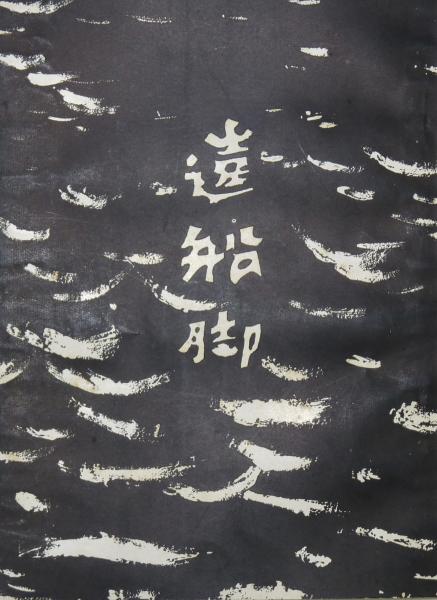 遠船脚